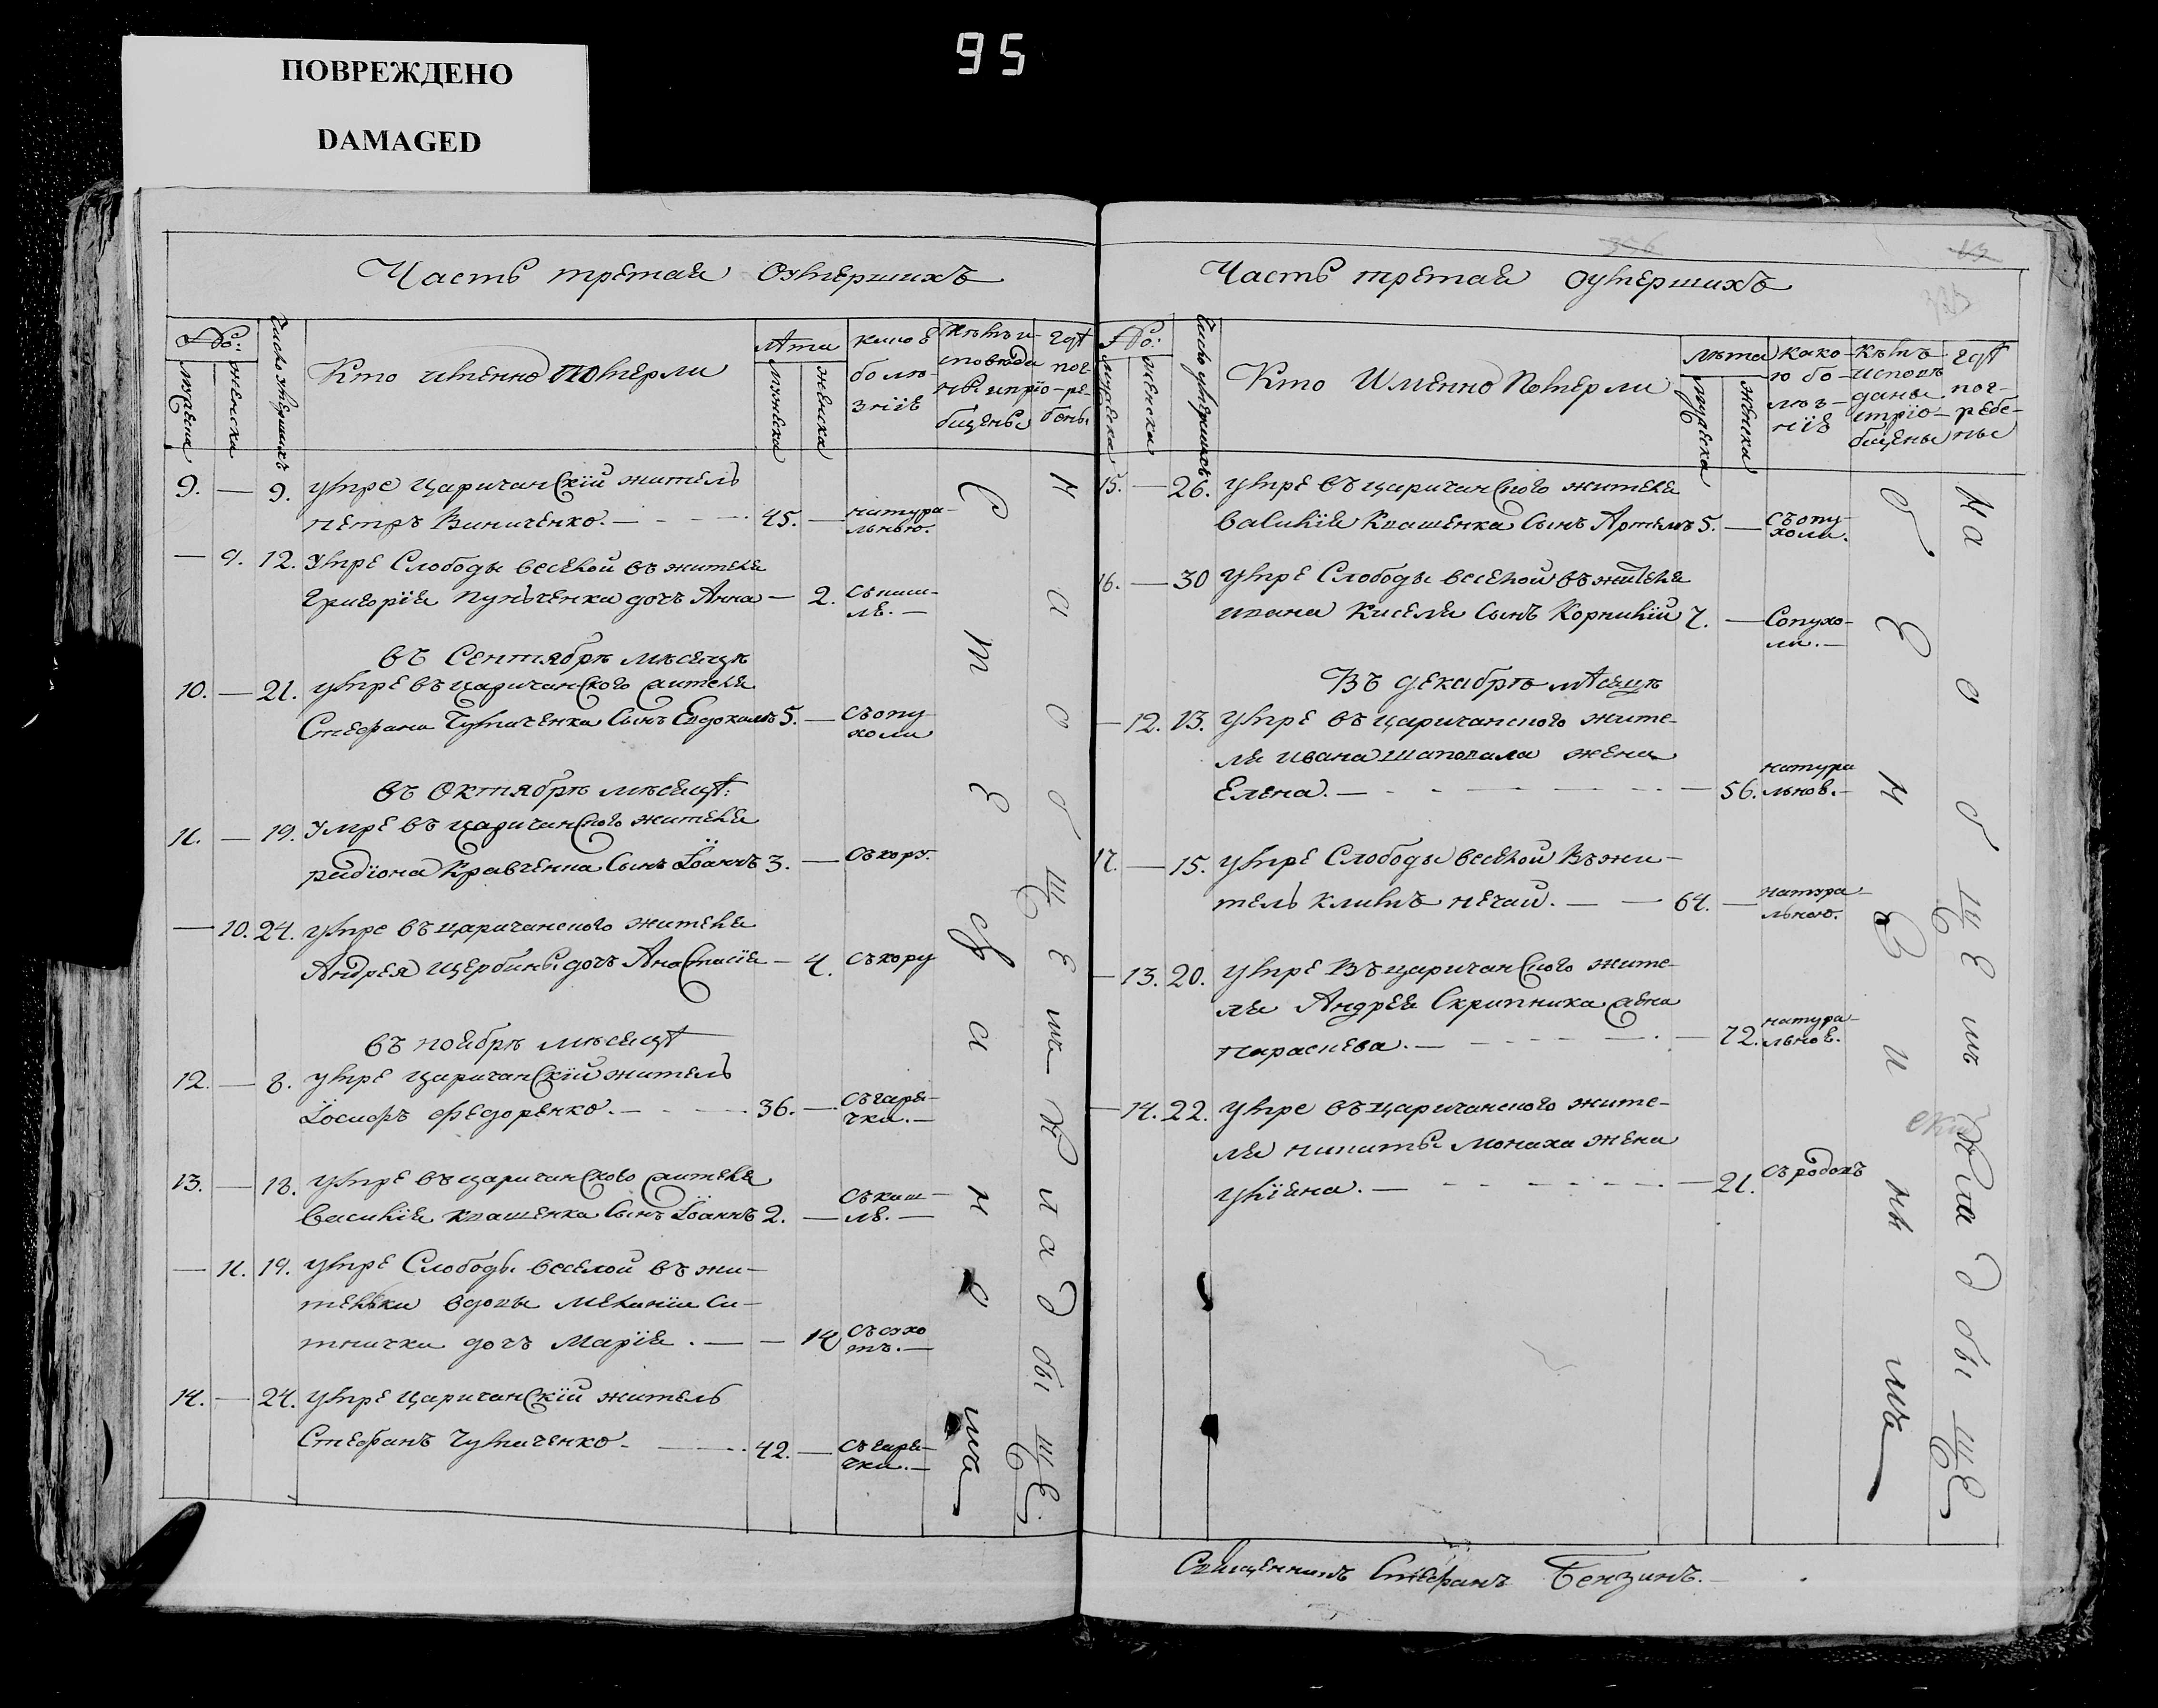 95
ПОВРЕЖДЕНО
DAMAGED
Часть третая Оумершихъ
№:
мужеска
женска
Число умершихъ
Кто именно померли
лѣта
мужеска
женска
какою
болѣ-
знїю
Кѣмъ и-
сповѣда
ны и прїо-
бщены
гдѣ
пог-
ре-
бены
9. — 9. умре царичанскїй житель
петръ Виниченко. — 45. — натура-
льною.
— 9. 12. Умре Слободы веселой въ жителя
Григорїя Пунченка дочъ Анна — 2. Съ каш-
лю. —
въ Сентябрѣ мѣсяцѣ
10. — 21. умре въ царичанского жителя
Стефана Чумаченка Сынъ Евдокимъ 5. — Съ опу-
холи
въ Октябрѣ мѣсяцѣ:
11. — 19. Умре въ царичанского жителя
радїона Кравченка Сынъ Іоаннъ 3. — Съ кору.
— 10. 24. умре въ царичанского жителя
Андрея Щербины дочъ Анастасїя — 4. Съ кору
въ ноябрѣ мѣсяцѣ
12. — 8. умре царичанскїй житель
Іосифъ Федоренко. — 36. — Съ горя-
чки. —
13. — 18. умре въ царичанского жителя
василїя квашенка Сынъ Іоаннъ 2. — Съ каш-
лю. —
— 11. 19. умре Слободы веселой въ жи-
тельки вдовы меланїи Си-
тнички дочъ Марїя. — 14 Съ сухо
тъ. —
14. — 24. умре царичанскїй житель
Стефанъ Чумаченко. — 42. — Съ горя-
чки. —
С т е ф а н о мъ
На общемъ кладбыще
Часть третая Оумершихъ
№:
мужеска
женска
Число умершихъ
Кто Именно Померли
лѣта
мужеска
женска
како-
ю бо-
лѣз-
нїю
Кѣмъ
исповѣ
даны
и прїо-
бщены
гдѣ
пог-
ребе-
ны
15. — 26. умре въ царичанского жителя
василїя Квашенка Сынъ Артемъ 5. — Съ опу-
холи.
16. — 30 умре Слободы веселой въ жителя
ивана Киселя Сынъ Корнилїй 7. — Сопухо-
ли. —
Въ декабрѣ мѣсяцѣ
— 12. 13. умре въ царичанского жите-
ля ивана шаповала жена
Елена. — 56. натура
льною. —
17. — 15. умре Слободы веселой Въ жи-
тель климъ нечай. — 64. — натура-
льною.
— 13. 20. умре Въ царичанского жите-
ля Андрея Скрипника жена
параскева. — 72. натура-
льною.
— 14. 22. умре въ царичанского жите-
ля никиты монаха жена
улїяна. — 21. Съ родовъ
Б е н з и н о мъ
На общемъ кладбыще
Священникъ Стефанъ Бензинъ. —